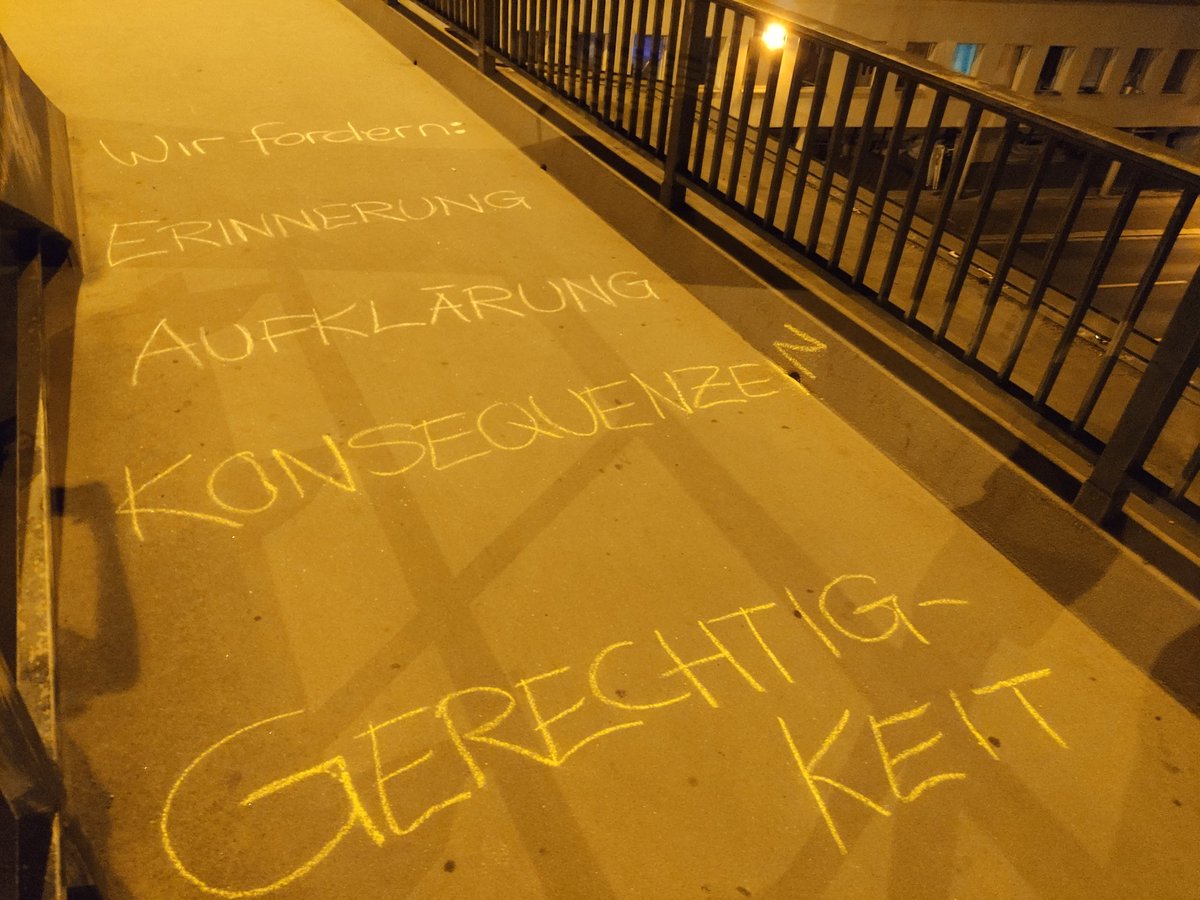 Wir fordern:
ERINNERUNG
AUFKLÄRUNG
KONSEQUENZEN
GERECHTIG-
KEIT